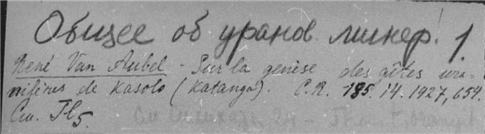 Общее об уранов. минер. 1
René Van Aubel - Sur la genèse des gîtes ura-
nifères de Kasolo (Katanga). C.R. 185. 14. 1927, 654.
См. Th5.